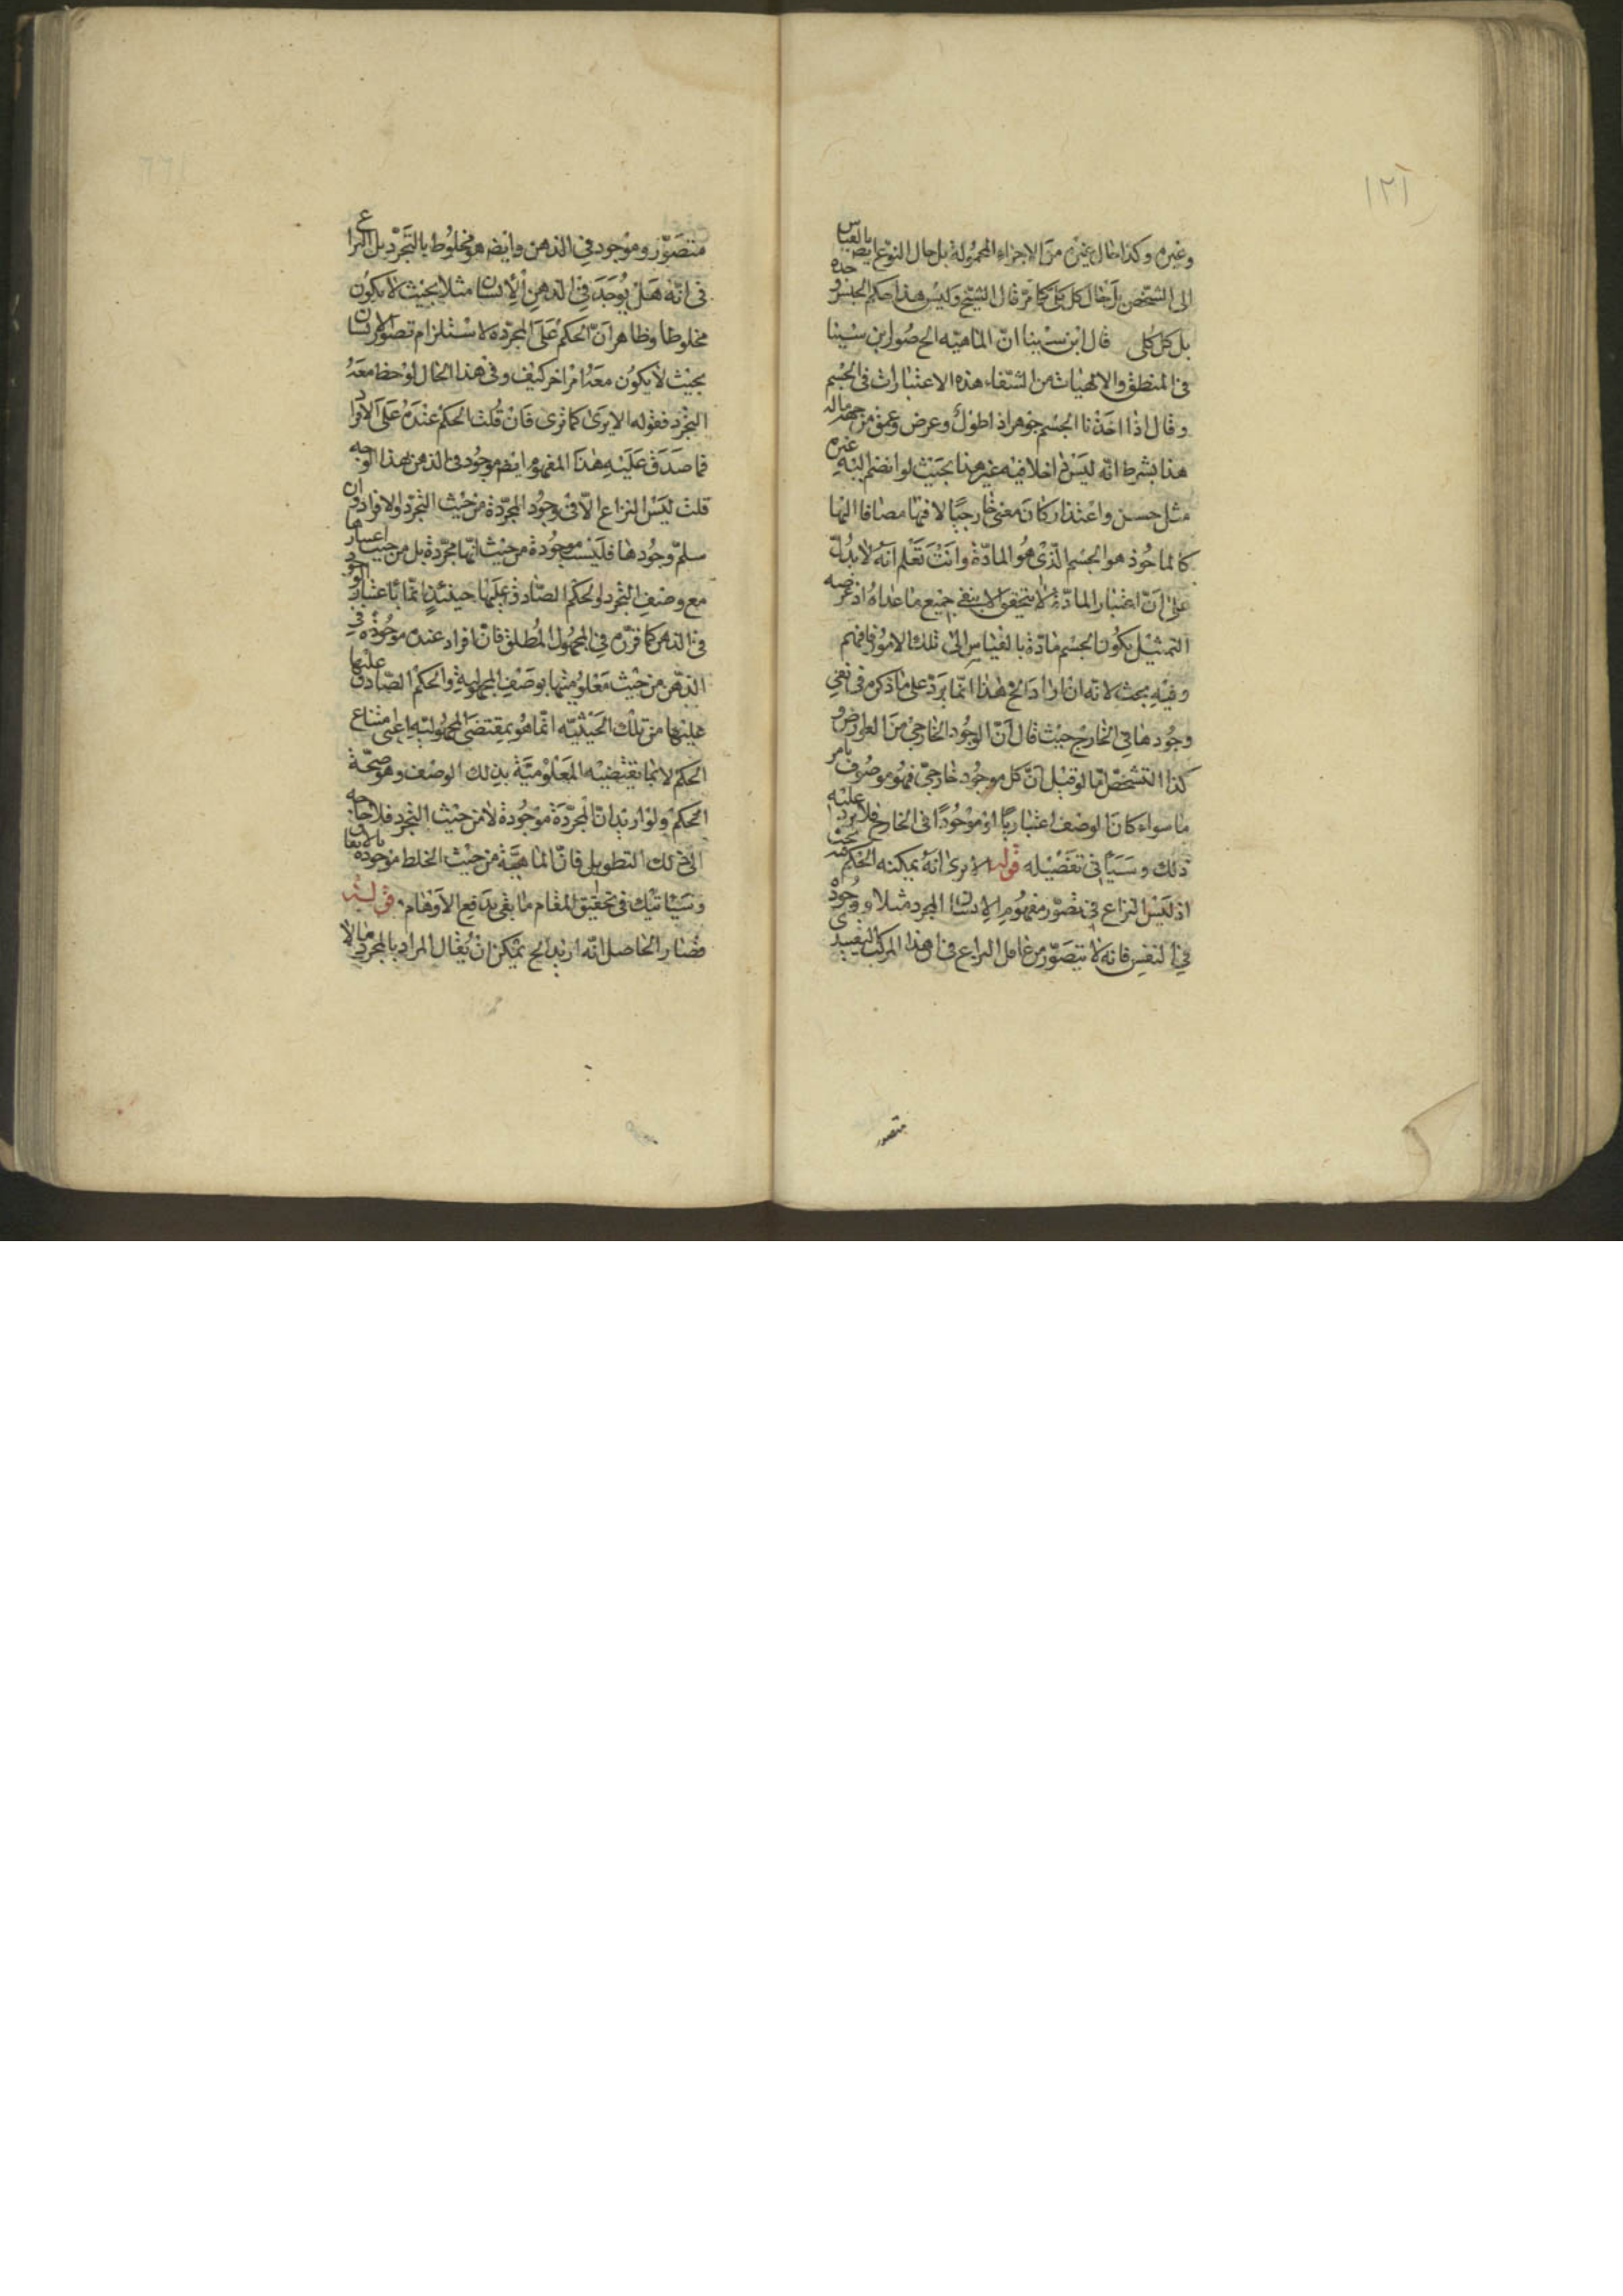 ١٢١
وغيره وكذا حال غيره من الاجزاء المحمولة بل حال النوع ايض بالقياس
الى الشخص بل حال كل كلى كما مر قال الشيخ وليس هذا حكم الجنس وحده
بل كل كلى قال ابن سينا ان الماهية الخ صور ابن سينا
فى المنطق والالهيات من الشفاء هذه الاعتبارات فى الجسم
وقال اذا اخذنا الجسم جوهرا ذا طول وعرض وعمق من جهة ماله
هذا بشرط انه ليس داخلا فيه غير هذا بحيث لو انضم اليه غيره
مثل حسن واعتذار كان معنى خارجيا لا فيها مضافا اليها
كالماخوذ هو الجسم الذى هو المادة وانت تعلم انه لا يدل
على ان اعتبار المادة لا يتحقق الا بنفى جميع ما عداه اذ غرضه
التمثيل بكون الجسم مادة بالقياس الى تلك الامور فافهم
وفيه بحث لانه ان اراد الخ هذا انما يرد على ما ذكره فى نفى
وجودها فى الخارج حيث قال ان الوجود الخارجى من العوارض و
كذا التشخص اما لو قيل ان كل موجود خارجى فهو موصوف بامر
ما سواء كان الوصف اعتباريا او موجودا فى الخارج فلا يرد عليه
ذلك وسياتى تفصيله قوله الا يرى انه يمكنه الحكم بحث
اذ ليس النزاع فى تصور مفهوم الانسان المجرد مثلا ووجوده
فى النفس فانه لا يتصور من عاقل النزاع فى ان هذا المركب التقييدى
متصور
متصور وموجود فى الذهن وايضه هو مخلوط بالتجرد بل النزاع
فى انه هل يوجد فى الذهن الانسان مثلا بحيث لا يكون
مخلوطا وظاهر ان الحكم على المجردة لا استلزام تصور الانسان
بحيث لا يكون معه امر اخر كيف وفى هذا الحال لوحظ معه
التجرد فقوله الا يرى كما ترى فان قلت الحكم عنده على الافراد
فما صدق عليه هذا المفهوم ايضه موجود فى الذهن بهذا الوجه
قلت ليس النزاع الا فى وجود المجردة من حيث التجرد والافراد وان
سلم وجودها فليست موجودة من حيث انها مجردة بل من حيث اعتبارها
مع وصف التجرد والحكم الصادق عليها حينئذ انما باعتبار الوجود
فى الذهن كما قرره فى المجهول المطلق فان افراد عنده موجودة فى
الذهن من حيث معلوميتها بوصف المجهولية والحكم الصادق عليها
عليها من تلك الحيثية انما هو بمقتضى المجهولية اعنى امتناع
الحكم لا بما تقتضيه المعلومية بذلك الوصف وهو صحة
الحكم ولو اريد ان المجردة موجودة لا من حيث التجرد فلا حاجة
الى ذلك التطويل فان الماهية من حيث الخلط موجودة بالاتفاق
وسياتيك فى تحقيق المقام ما بقى يدافع الاوهام قوله
فصار الحاصل انه اريد الخ يمكن ان يقال المراد بالمجرد ما لا